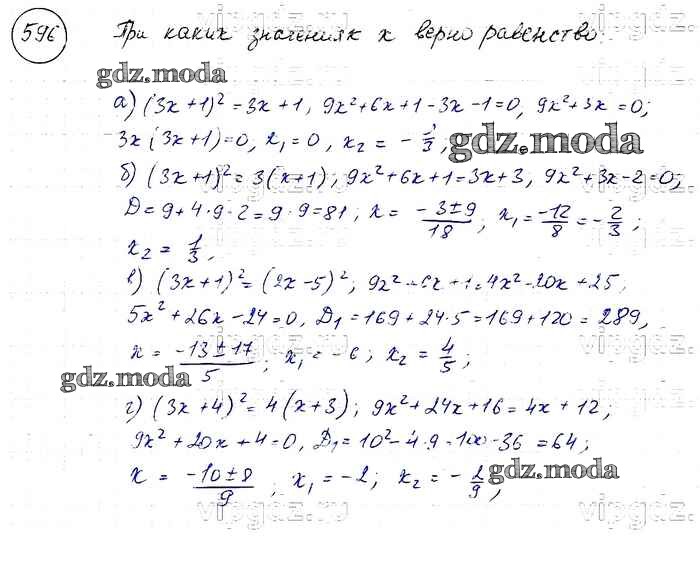 596 При каких значениях x верно равенство:
gdz.moda
а) (3x+1)² = 3x+1, 9x²+6x+1-3x-1=0, 9x²+3x=0;
3x(3x+1)=0, x₁=0, x₂ = -1/3;
gdz.moda
б) (3x+1)² = 3(x+1); 9x²+6x+1=3x+3, 9x²+3x-2=0;
D=9+4·9·2=9·9=81; x = (-3±9)/18; x₁ = -12/8 = -2/3;
x₂ = 1/3;
в) (3x+1)² = (2x-5)²; 9x²+6x+1=4x²-20x+25,
5x²+26x-24=0, D₁=169+24·5=169+120=289,
x = (-13±17)/5; x₁=-6; x₂ = 4/5;
gdz.moda
г) (3x+4)² = 4(x+3); 9x²+24x+16=4x+12;
9x²+20x+4=0, D₁=10²-4·9=100-36=64;
x = (-10±8)/9; x₁=-2; x₂ = -2/9;
gdz.moda
vipgdz.ru